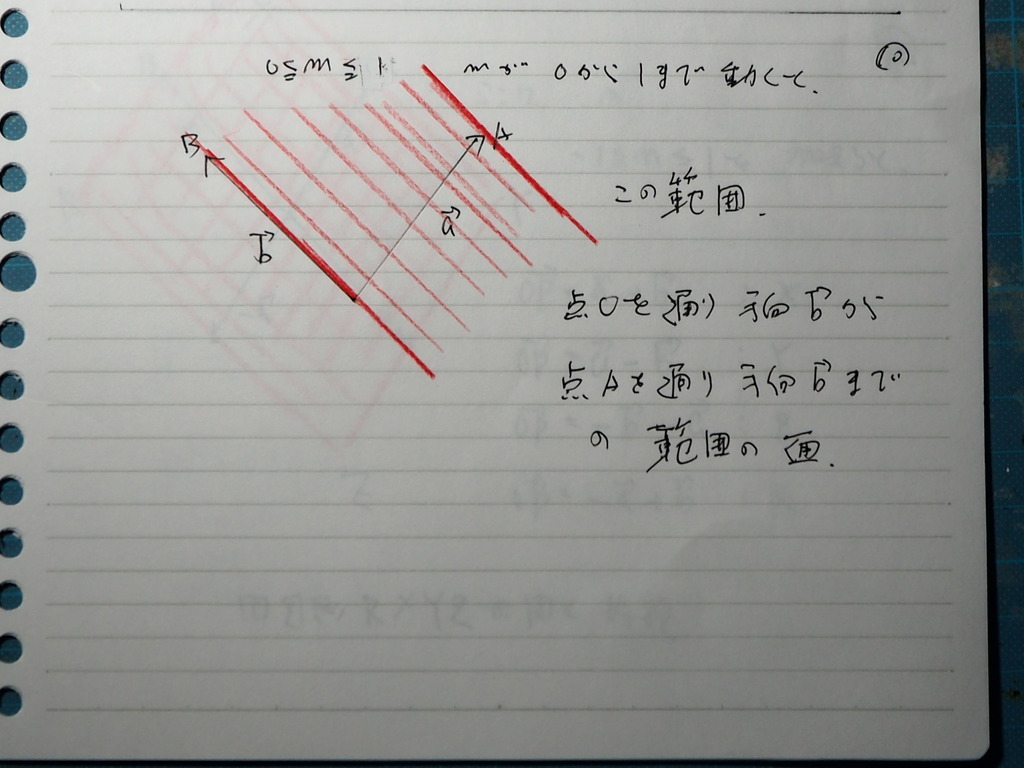 (0)
0≦m≦1 mが 0から 1まで 動くと.
B A
a→
b→
この範囲.
点Oを通り 方向 b→ から
点Aを通り 方向 b→ まで
の 範囲の 面.